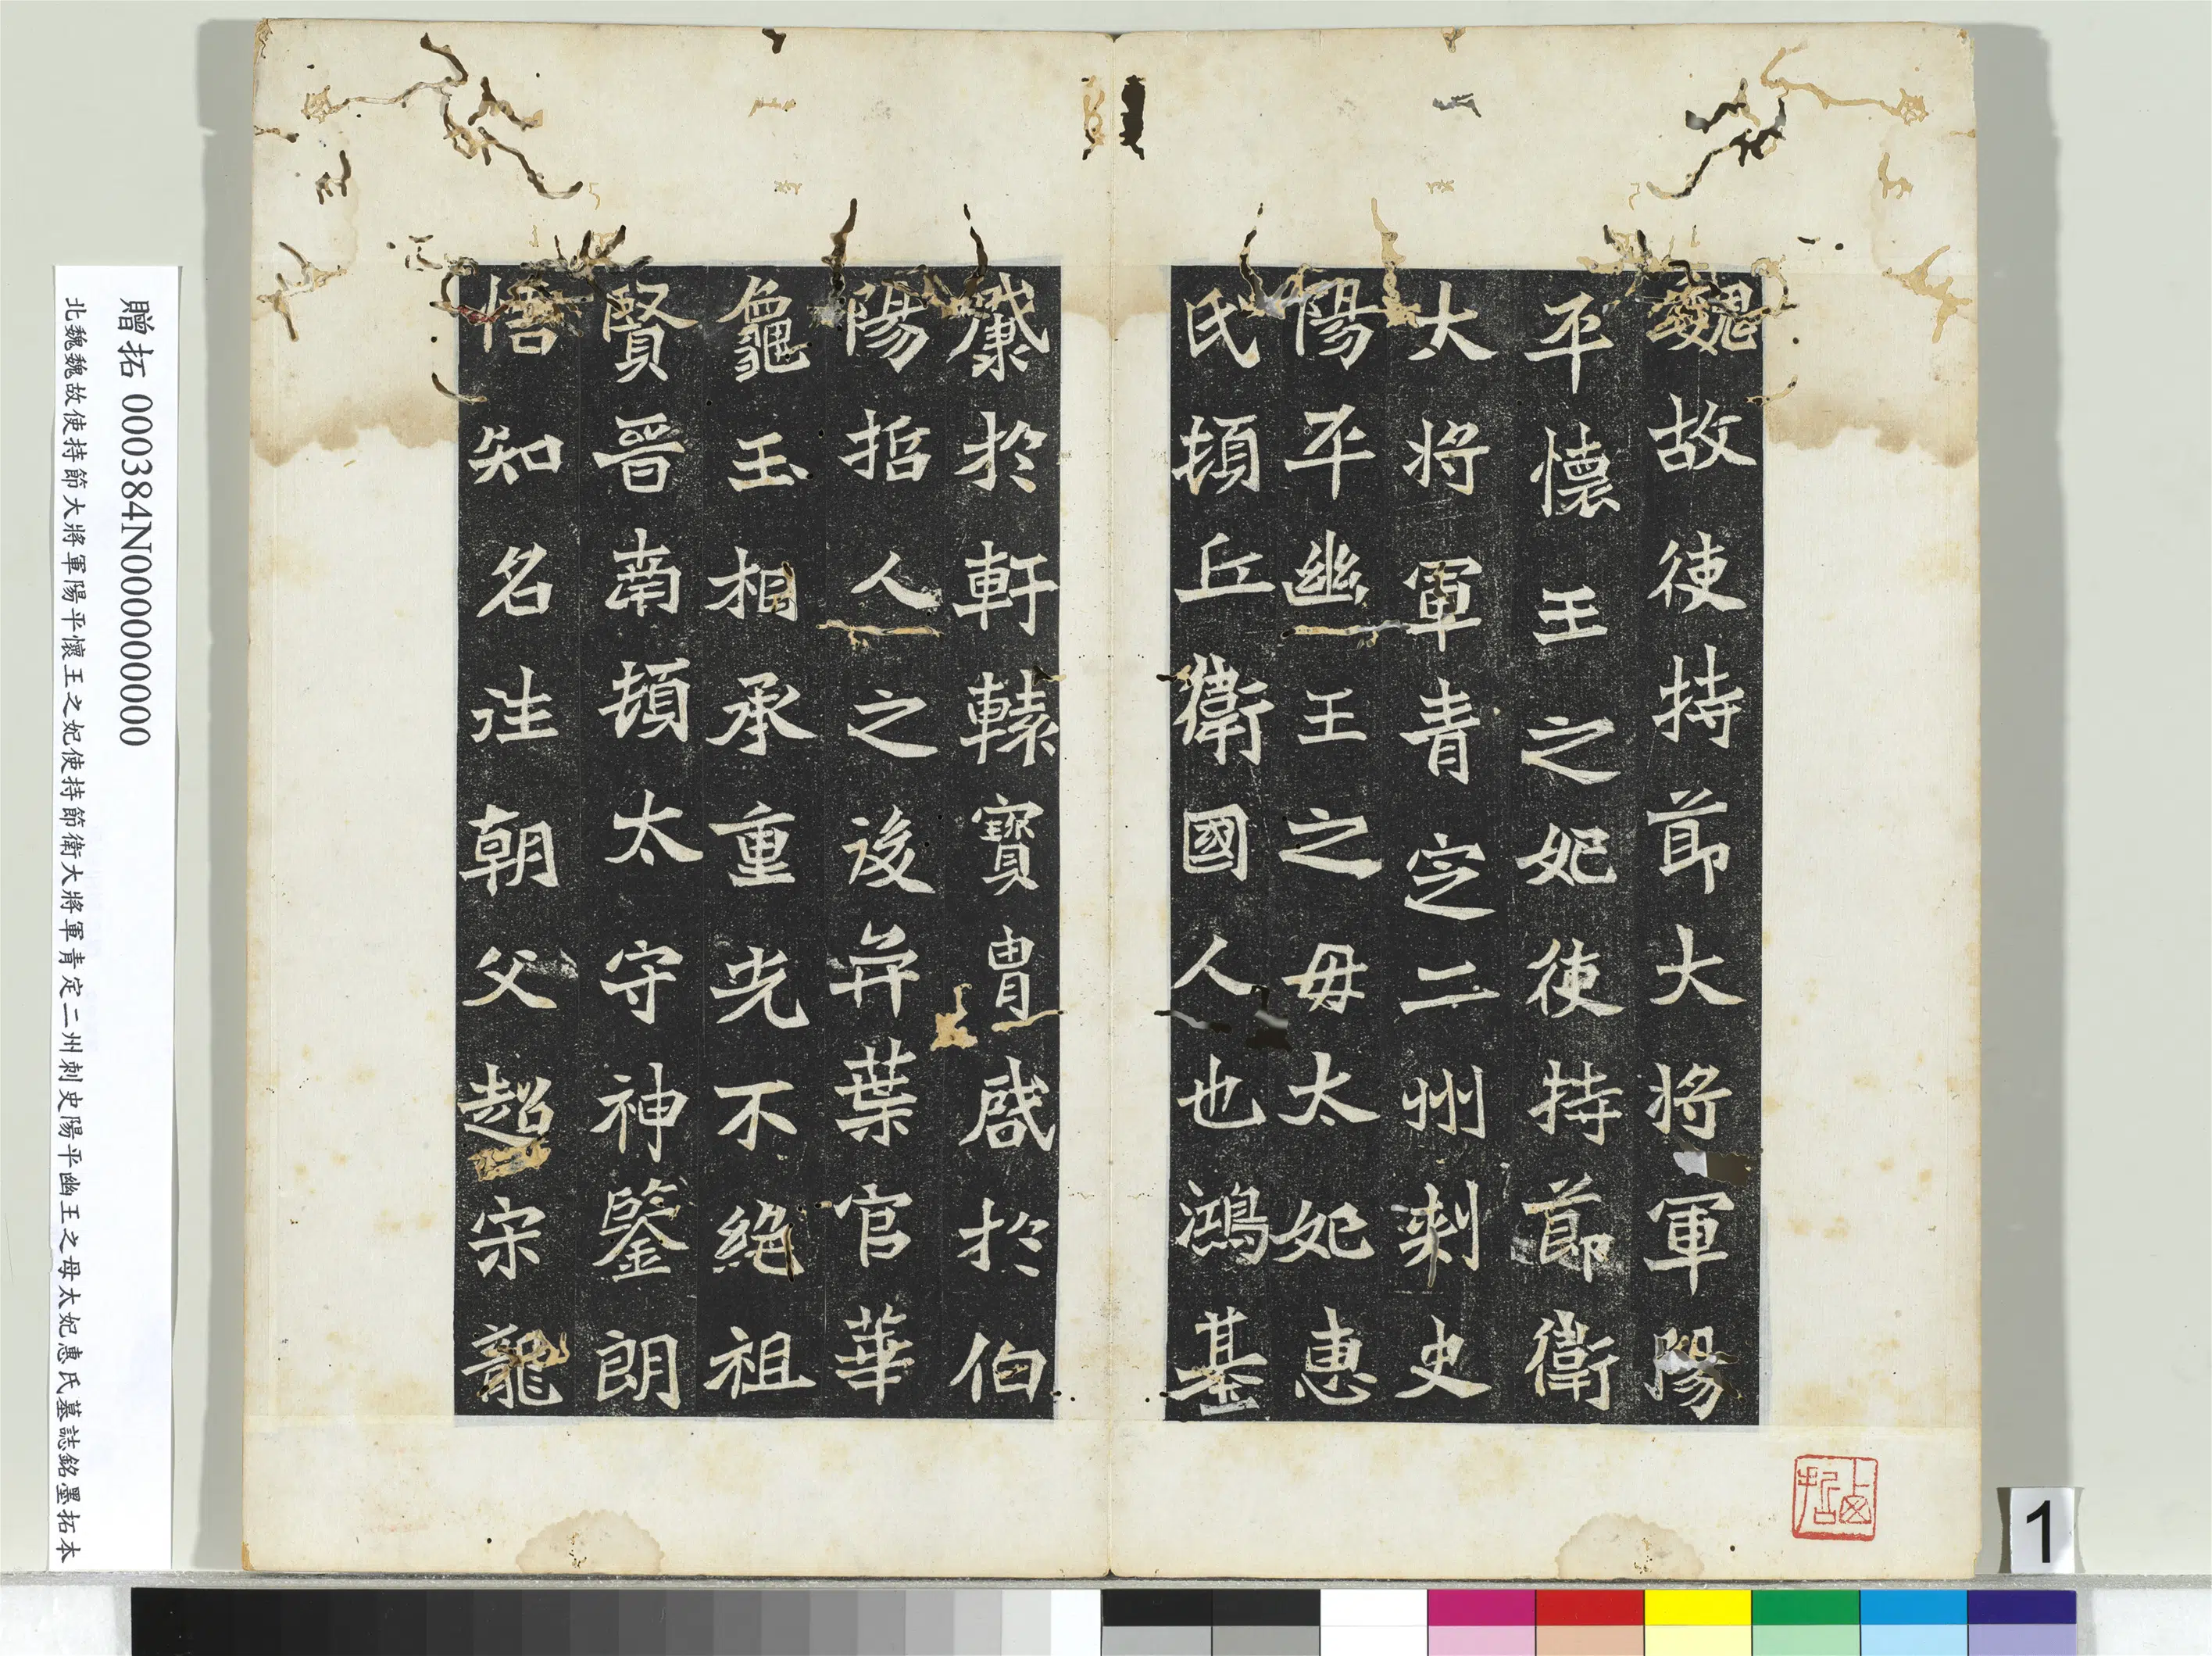 魏故使持節大將軍陽
平懷王之妃使持節衛
大將軍青定二州刺史
陽平幽王之母太妃惠
氏頓丘衛國人也鴻基
於軒轅寶冑啟於伯
陽哲人之後弈葉官華
龜玉相承重光不絕祖
賢晉南頓太守神鑒朗
悟知名洼朝父超宋龍
贈拓 000384N000000000
北魏魏故使持節大將軍陽平懷王之妃使持節衛大將軍青定二州刺史陽平幽王之母太妃惠氏墓誌銘墨拓本
1